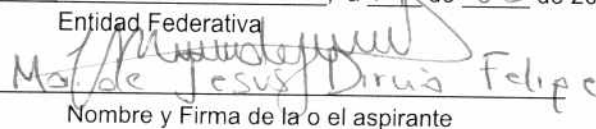 a de de 20
Entidad Federativa
Ma. de Jesus Felipe
Nombre y Firma de la o el aspirante